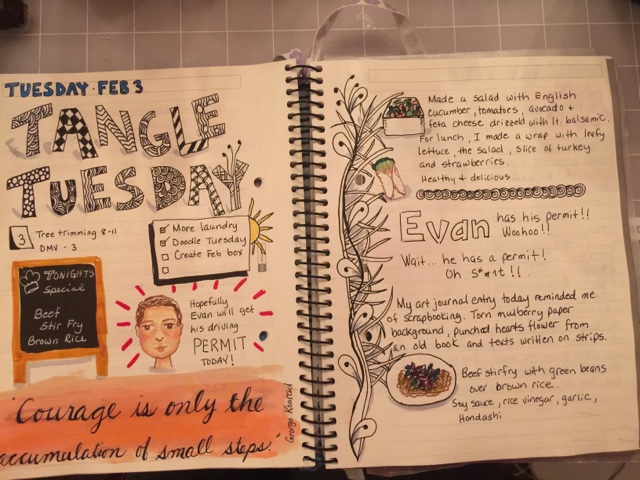 TUESDAY · FEB 3
TANGLE
TUESDAY
3
Tree trimming 8-11
DMV - 3
More laundry
Doodle Tuesday
Create Feb box
TONIGHTS
Special
Beef
Stir Fry
Brown Rice
Hopefully
Evan will get
his driving
PERMIT
TODAY!
"Courage is only the
accumulation of small steps."
George Konrad
Made a salad with English
cucumber, tomatoes, avocado +
feta cheese drizzled with lt. balsamic.
For lunch, I made a wrap with leafy
lettuce, the salad, slice of turkey
and strawberries.
Healthy & delicious....
Evan has his permit!!
Woohoo!!
Wait... he has a permit!
Oh S*#t!!
My art journal entry today reminded me
of scrapbooking. Torn mulberry paper
background, punched hearts flower from
an old book and texts written on strips.
Beef stirfry with green beans
over brown rice.
Soy sauce, rice vinegar, garlic,
Hondashi